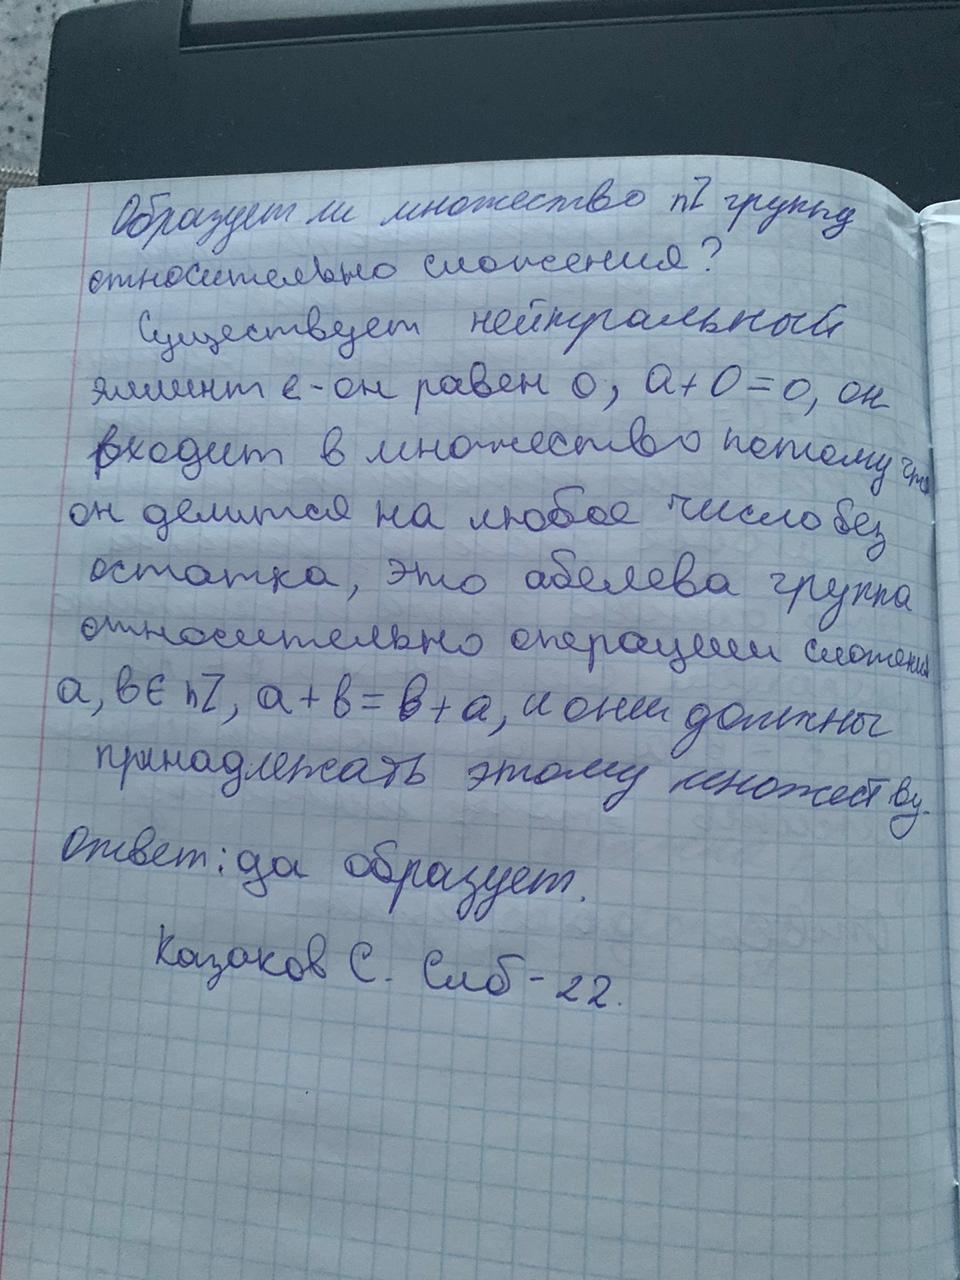 Образует ли множество nZ группу
относительно сложения?
Существует нейтральный
элемент е - он равен 0, a + 0 = 0, он
входит в множество потому что
он делится на любое число без
остатка, это абелева группа
относительно операции сложения
a, b ∈ nZ, a + b = b + a, и они должны
принадлежать этому множеству.
Ответ: да образует.
Казаков С. Слб - 22.